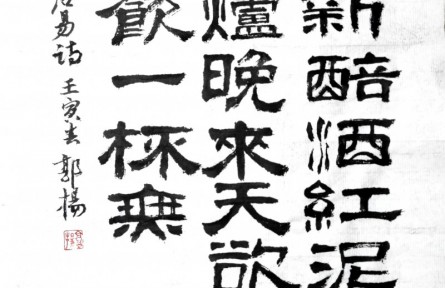 新醅酒紅泥
爐晚來天欲
飲一杯無
居易詩 壬寅春 郭楊